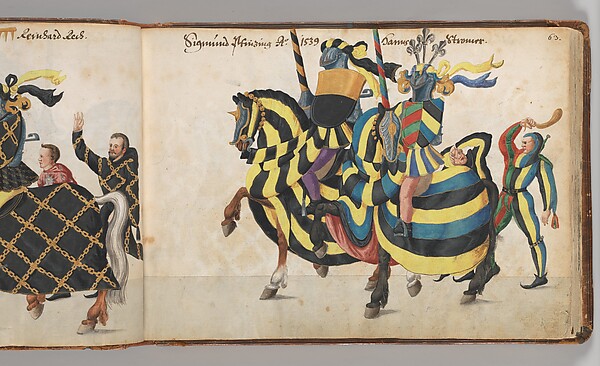 Reinhard Rech.
Sigmund Pfinzing Aº 1539 Hanns Stromer. 63.